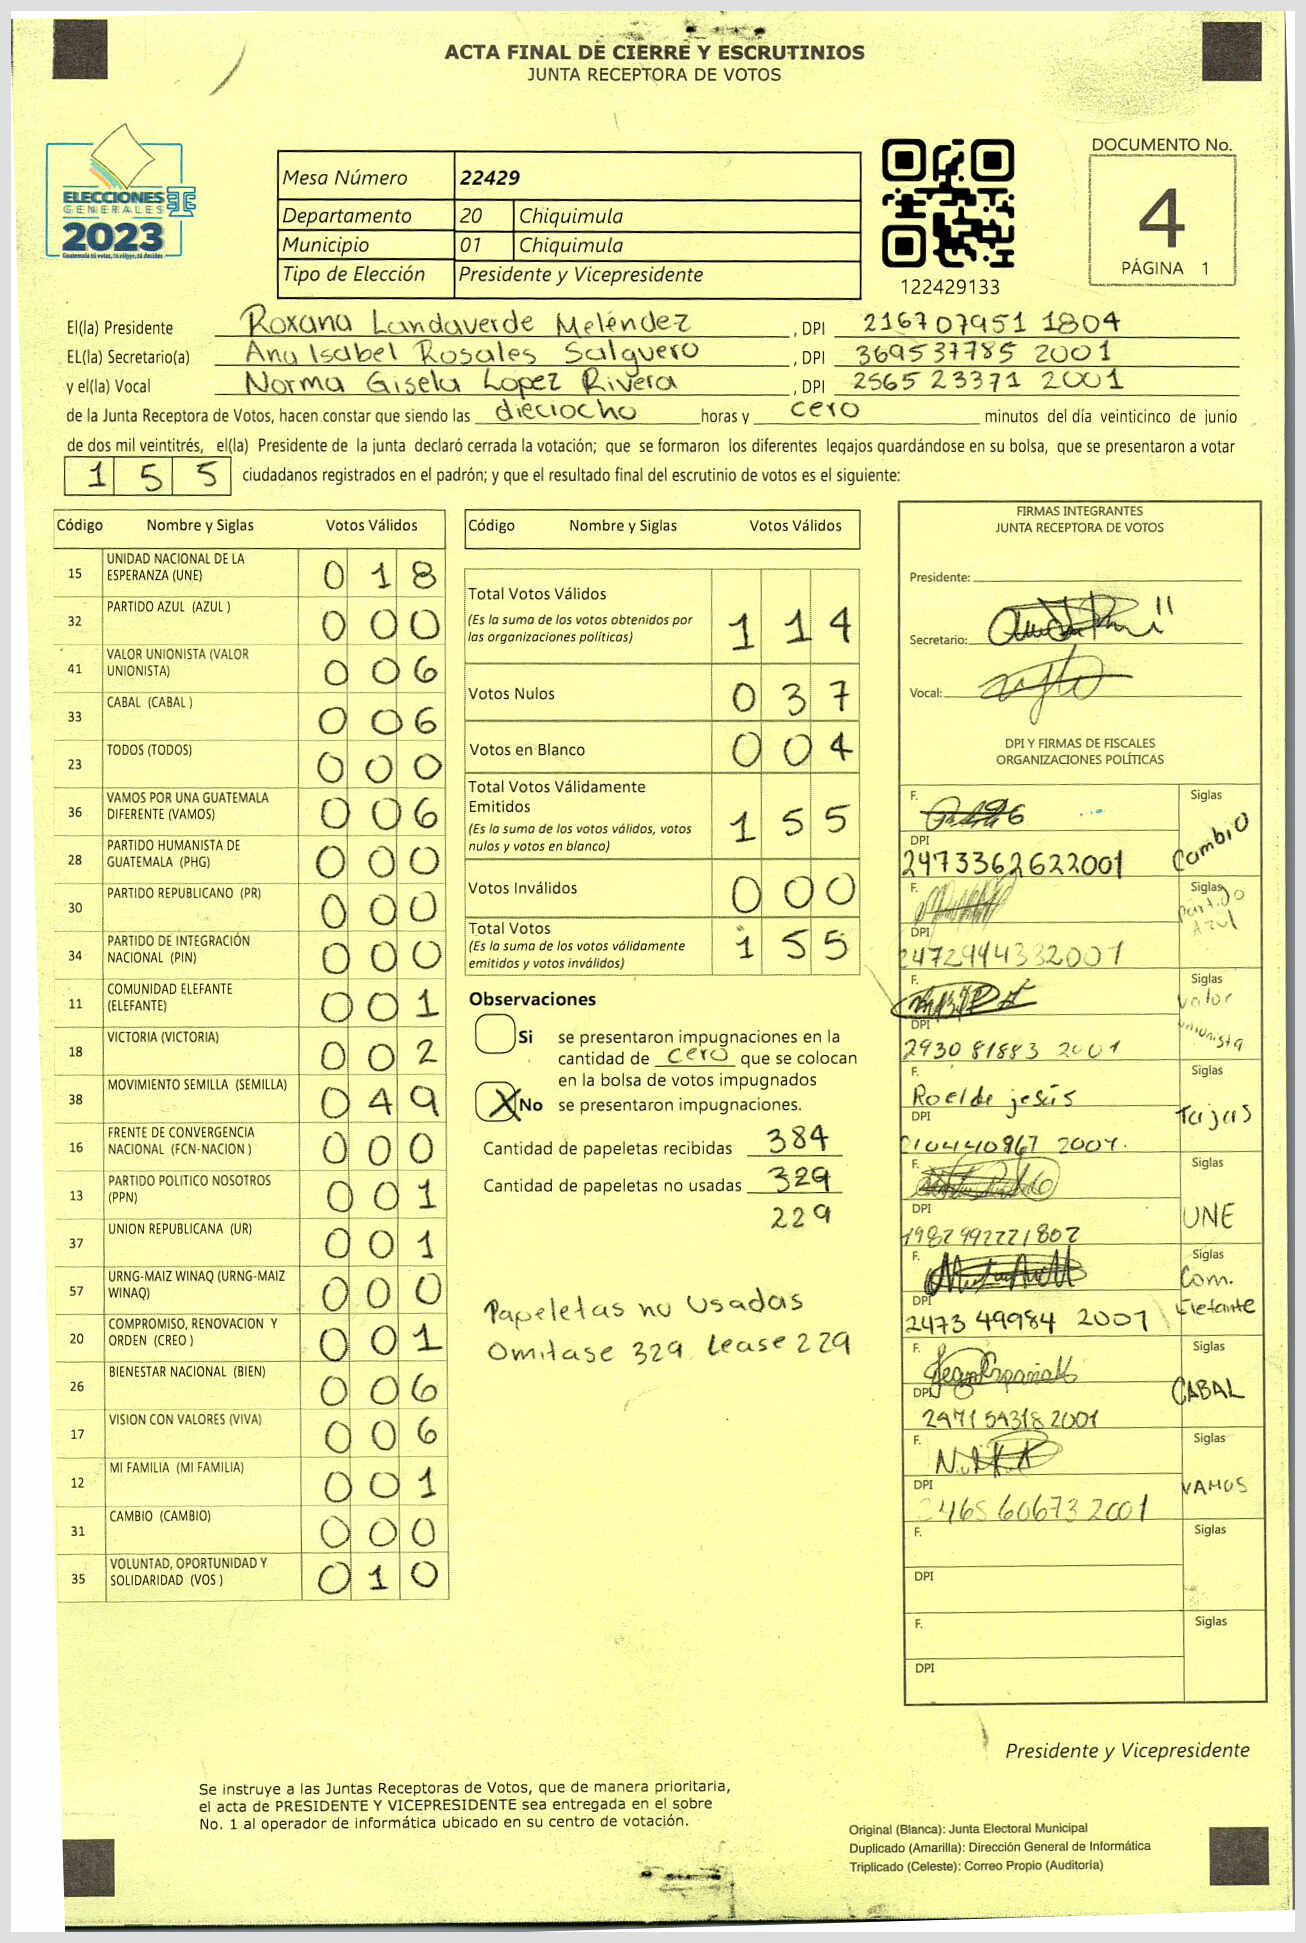 ACTA FINAL DE CIERRE Y ESCRUTINIOS
JUNTA RECEPTORA DE VOTOS
ELECCIONES
GENERALES
2023
Guatemala tú votas, tú eliges, tú decides
Mesa Número 22429
Departamento 20 Chiquimula
Municipio 01 Chiquimula
Tipo de Elección Presidente y Vicepresidente
122429133
DOCUMENTO No.
4
PÁGINA 1
El(la) Presidente Roxana Landaverde Meléndez, DPI 216707951 1804
EL(la) Secretario(a) Ana Isabel Rosales Salguero, DPI 369537785 2001
y el(la) Vocal Norma Gisela Lopez Rivera, DPI 2565 23371 2001
de la Junta Receptora de Votos, hacen constar que siendo las dieciocho horas y cero minutos del día veinticinco de junio
de dos mil veintitrés, el(la) Presidente de la junta declaró cerrada la votación; que se formaron los diferentes legajos guardándose en su bolsa, que se presentaron a votar
155 ciudadanos registrados en el padrón; y que el resultado final del escrutinio de votos es el siguiente:
Código Nombre y Siglas Votos Válidos
15 UNIDAD NACIONAL DE LA ESPERANZA (UNE) 018
32 PARTIDO AZUL (AZUL ) 000
41 VALOR UNIONISTA (VALOR UNIONISTA) 006
33 CABAL (CABAL ) 006
23 TODOS (TODOS) 000
36 VAMOS POR UNA GUATEMALA DIFERENTE (VAMOS) 006
28 PARTIDO HUMANISTA DE GUATEMALA (PHG) 000
30 PARTIDO REPUBLICANO (PR) 000
34 PARTIDO DE INTEGRACIÓN NACIONAL (PIN) 000
11 COMUNIDAD ELEFANTE (ELEFANTE) 001
18 VICTORIA (VICTORIA) 002
38 MOVIMIENTO SEMILLA (SEMILLA) 049
16 FRENTE DE CONVERGENCIA NACIONAL (FCN-NACION ) 000
13 PARTIDO POLITICO NOSOTROS (PPN) 001
37 UNION REPUBLICANA (UR) 001
57 URNG-MAIZ WINAQ (URNG-MAIZ WINAQ) 000
20 COMPROMISO, RENOVACION Y ORDEN (CREO ) 001
26 BIENESTAR NACIONAL (BIEN) 006
17 VISION CON VALORES (VIVA) 006
12 MI FAMILIA (MI FAMILIA) 001
31 CAMBIO (CAMBIO) 000
35 VOLUNTAD, OPORTUNIDAD Y SOLIDARIDAD (VOS ) 010
Código Nombre y Siglas Votos Válidos
Total Votos Válidos 114
(Es la suma de los votos obtenidos por
las organizaciones políticas)
Votos Nulos 037
Votos en Blanco 004
Total Votos Válidamente
Emitidos 155
(Es la suma de los votos válidos, votos
nulos y votos en blanco)
Votos Inválidos 000
Total Votos 155
(Es la suma de los votos válidamente
emitidos y votos inválidos)
Observaciones
Si se presentaron impugnaciones en la
cantidad de cero que se colocan
en la bolsa de votos impugnados
X No se presentaron impugnaciones.
Cantidad de papeletas recibidas 384
Cantidad de papeletas no usadas 329
229
Papeletas no usadas
Omitase 329 Lease 229
FIRMAS INTEGRANTES
JUNTA RECEPTORA DE VOTOS
Presidente:
Secretario:
Vocal:
DPI Y FIRMAS DE FISCALES
ORGANIZACIONES POLÍTICAS
F. Siglas
DPI
2473362622001 Cambio
F. Siglas
partido
Azul
DPI
2472944332001
F. Siglas
valor
unionista
DPI
2930 81883 2001
F. Siglas
Roelde jesús
DPI Tajas
210440867 2001.
F. Siglas
DPI UNE
1982992221802
F. Siglas
DPI Com.
Elefante
2473 49984 2001
F. Siglas
DPI CABAL
2971543182001
F. Siglas
DPI VAMOS
2465 60673 2001
F. Siglas
DPI
F. Siglas
DPI
Presidente y Vicepresidente
Se instruye a las Juntas Receptoras de Votos, que de manera prioritaria,
el acta de PRESIDENTE Y VICEPRESIDENTE sea entregada en el sobre
No. 1 al operador de informática ubicado en su centro de votación.
Original (Blanca): Junta Electoral Municipal
Duplicado (Amarilla): Dirección General de Informática
Triplicado (Celeste): Correo Propio (Auditoría)